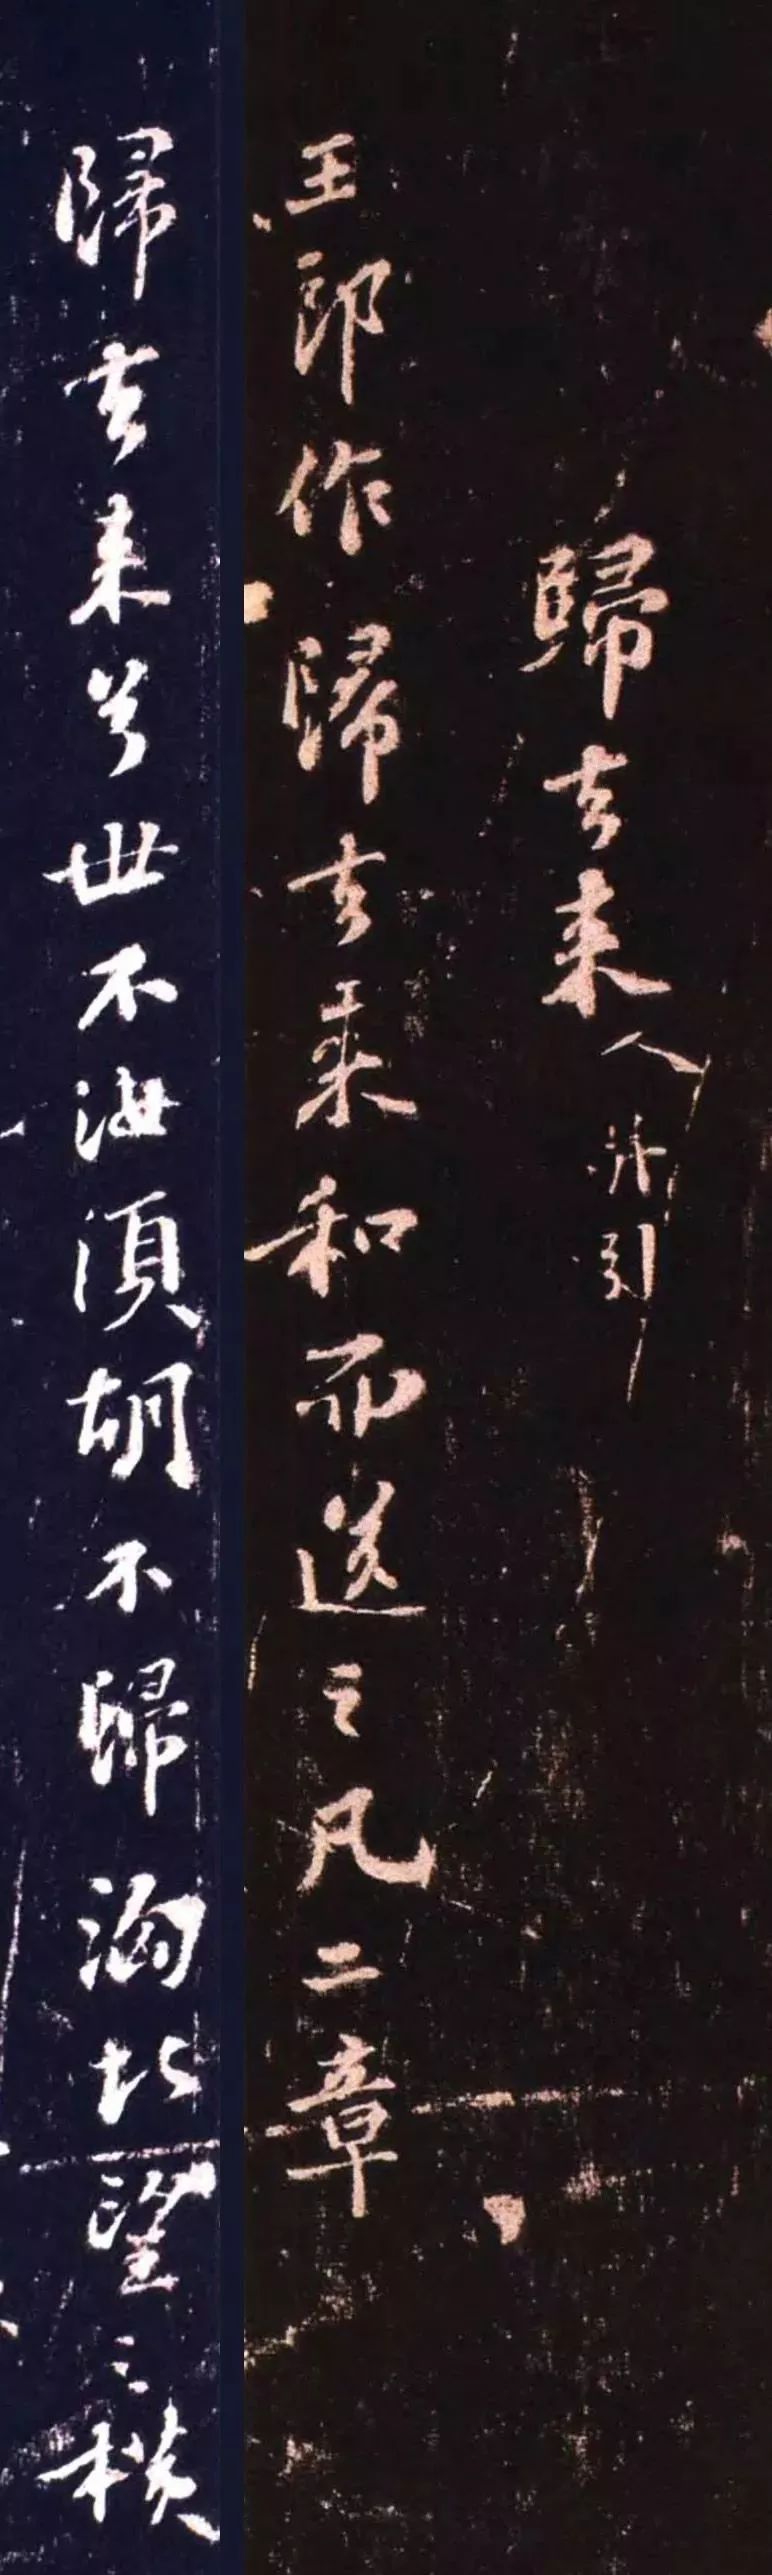 歸去來人并引
王郎作歸去來和而送之凡二章
歸去來兮世不汝須胡不歸洶北望之橫